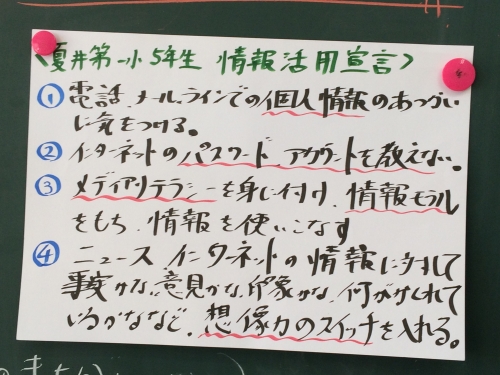 〈夏井第一小5年生 情報活用宣言〉
①電話、メール、ラインでの個人情報のあつかい
に気をつける。
②インターネットのパスワード、アカウントを教えない。
③メディアリテラシーを身に付け、情報モラル
をもち、情報を使いこなす
④ニュース インターネットの情報に対して
事実かな、意見かな、印象かな、何がかくれて
いるかななど、想像力のスイッチを入れる。